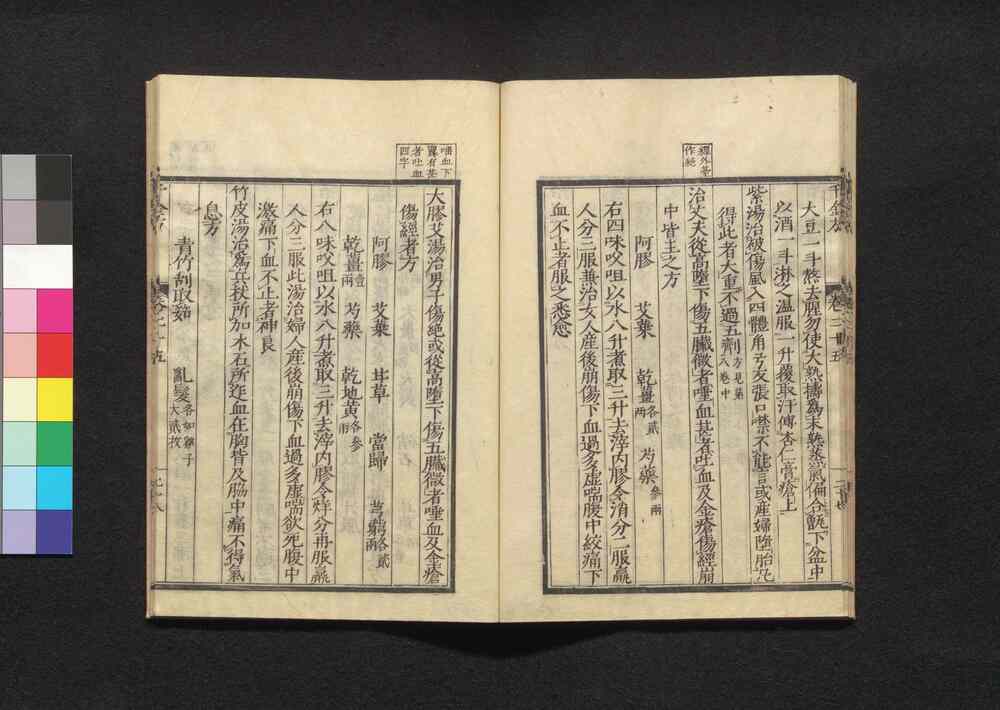 大豆一斗熬去腥勿使大熟擣爲末熟蒸氣徧合甑下盆中
以酒一斗淋之溫服一升覆取汗傅杏仁膏瘡上
紫湯治被傷風入四體角弓反張口噤不能言或產婦墮胎
得此者大重不過五劑方見第八卷中
治丈夫從高墮下傷五臟微者唾血甚者吐血及金瘡傷經崩
中皆主之方
阿膠 艾葉 乾薑各貳兩 芍藥參兩
右四味㕮咀以水八升煮取三升去滓內膠令消分二服羸
人分三服兼治女人產後崩傷下血過多虛喘腹中絞痛下
血不止者服之悉愈
大膠艾湯治男子傷絕或從高墮下傷五臟微者唾血及金瘡
唾血下
者吐血
四字
傷經者方
阿膠 艾葉 甘草 當歸 芎藭各貳兩
乾薑壹兩 芍藥 乾地黃各參兩
右八味㕮咀以水八升煮取三升去滓內膠令烊分再服羸
人分三服此湯治婦人產後崩傷下血過多虛喘欲死腹中
激痛下血不止者神良
竹皮湯治爲兵杖所加木石所迮血在胸背及脇中痛不得氣
息方
青竹刮取茹 亂髮各如雞子大貳枚